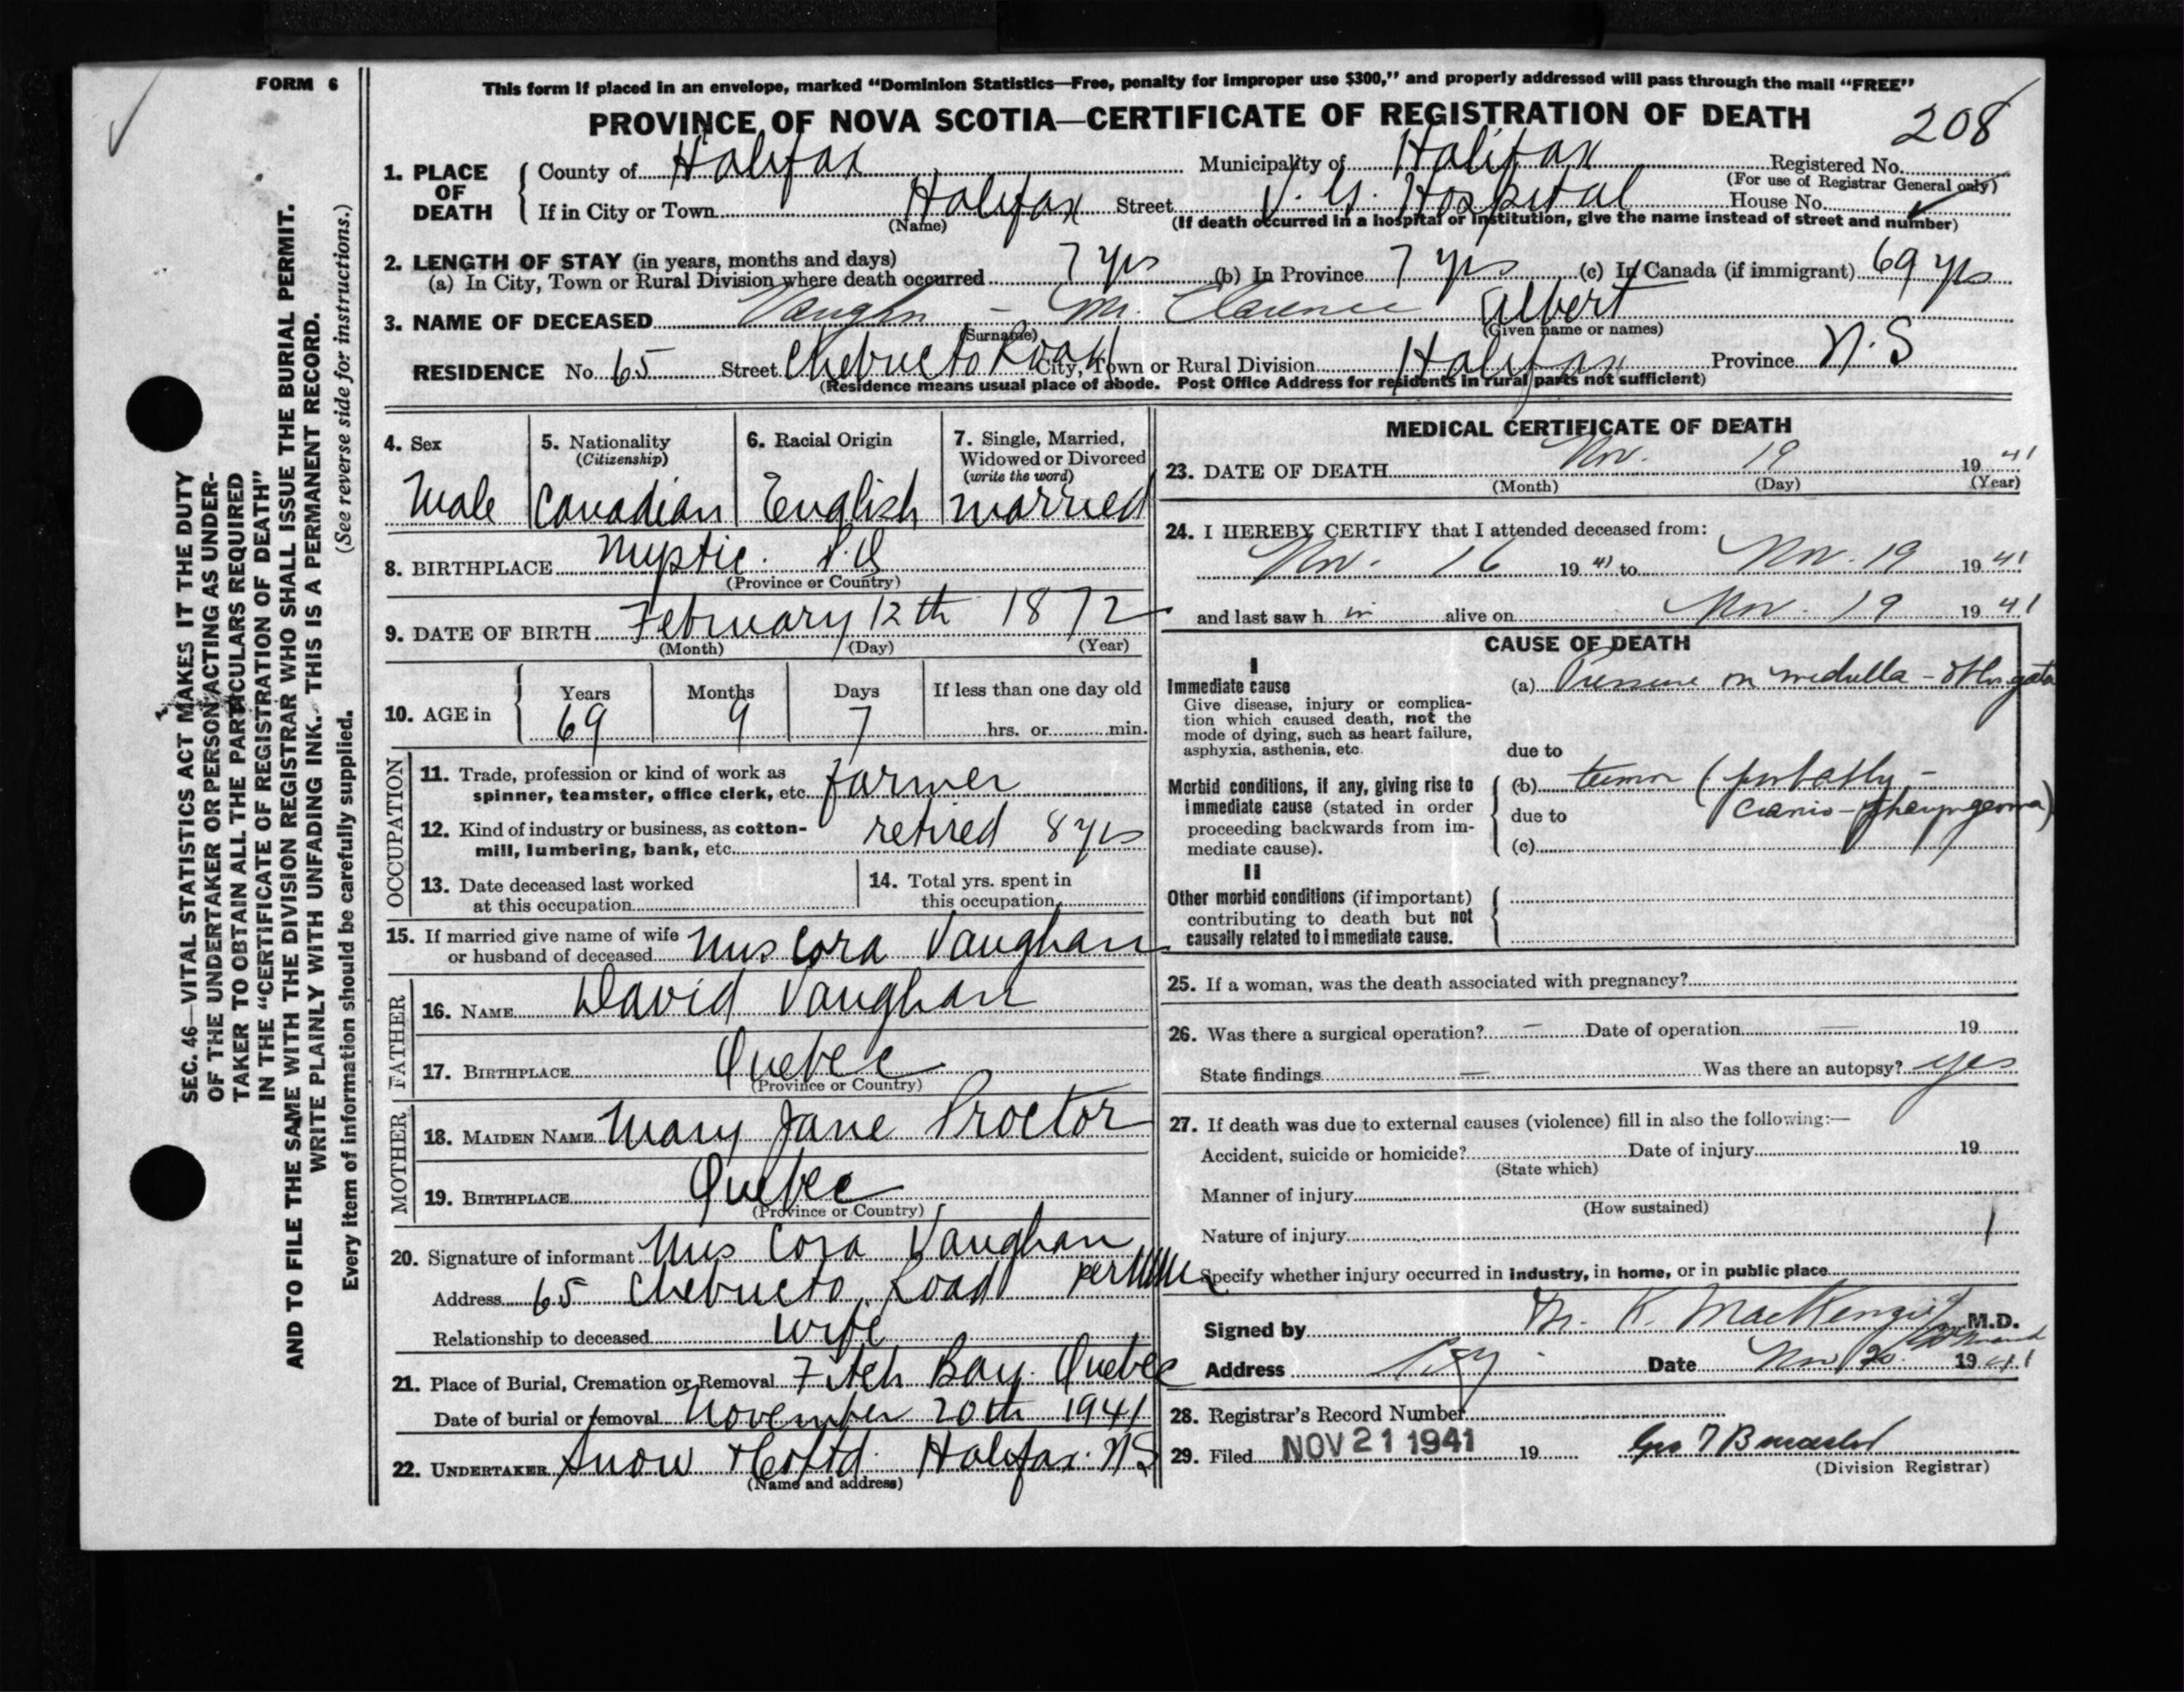 FORM 6
This form if placed in an envelope, marked “Dominion Statistics—Free, penalty for improper use $300,” and properly addressed will pass through the mail “FREE”
PROVINCE OF NOVA SCOTIA—CERTIFICATE OF REGISTRATION OF DEATH
208
1. PLACE OF DEATH
County of Halifax Municipality of Halifax Registered No.
(For use of Registrar General only)
If in City or Town Halifax Street V. G. Hospital House No.
(Name) (If death occurred in a hospital or institution, give the name instead of street and number)
2. LENGTH OF STAY (in years, months and days)
(a) In City, Town or Rural Division where death occurred 7 yrs (b) In Province 7 yrs (c) In Canada (if immigrant) 69 yrs
3. NAME OF DECEASED Vaughn - Mr. Clarence Albert
(Surname) (Given name or names)
RESIDENCE No. 65 Street Chebucto Road City, Town or Rural Division Halifax Province N.S
(Residence means usual place of abode. Post Office Address for residents in rural parts not sufficient)
4. Sex
Male
5. Nationality
(Citizenship)
Canadian
6. Racial Origin
English
7. Single, Married,
Widowed or Divorced
(write the word)
married
8. BIRTHPLACE Mystic. P.Q
(Province or Country)
9. DATE OF BIRTH February 12th 1872
(Month) (Day) (Year)
10. AGE in
Years Months Days If less than one day old
69 9 7 hrs. or min.
OCCUPATION
11. Trade, profession or kind of work as
spinner, teamster, office clerk, etc. farmer
12. Kind of industry or business, as cotton-
mill, lumbering, bank, etc. retired 8 yrs
13. Date deceased last worked
at this occupation
14. Total yrs. spent in
this occupation
15. If married give name of wife
or husband of deceased Mrs Cora Vaughan
FATHER
16. NAME David Vaughan
17. BIRTHPLACE Quebec
(Province or Country)
MOTHER
18. MAIDEN NAME Mary Jane Proctor
19. BIRTHPLACE Quebec
(Province or Country)
20. Signature of informant Mrs Cora Vaughan
per
Address 65 Chebucto Road
Relationship to deceased Wife
21. Place of Burial, Cremation or Removal Fitch Bay. Quebec
Date of burial or removal November 20th 1941
22. UNDERTAKER Snow & Co Ltd. Halifax. NS
(Name and address)
MEDICAL CERTIFICATE OF DEATH
23. DATE OF DEATH Nov. 19 1941
(Month) (Day) (Year)
24. I HEREBY CERTIFY that I attended deceased from:
Nov. 16 1941 to Nov. 19 1941
and last saw h im alive on Nov. 19 1941
CAUSE OF DEATH
I
Immediate cause
Give disease, injury or complica-
tion which caused death, not the
mode of dying, such as heart failure,
asphyxia, asthenia, etc.
(a) Pressure on medulla - oblongata
due to
Morbid conditions, if any, giving rise to
immediate cause (stated in order
proceeding backwards from im-
mediate cause).
(b) tumor (probably -
due to cranio-pharyngeoma)
(c)
II
Other morbid conditions (if important)
contributing to death but not
causally related to immediate cause.
25. If a woman, was the death associated with pregnancy?
26. Was there a surgical operation? — Date of operation — 19
State findings — Was there an autopsy? yes
27. If death was due to external causes (violence) fill in also the following:—
Accident, suicide or homicide? Date of injury 19
(State which)
Manner of injury
(How sustained)
Nature of injury
Specify whether injury occurred in industry, in home, or in public place
Signed by M. K. MacKenzie M.D.
Address City. Date Nov 20 1941
28. Registrar's Record Number
29. Filed NOV 21 1941 19
(Division Registrar)
SEC. 46—VITAL STATISTICS ACT MAKES IT THE DUTY
OF THE UNDERTAKER OR PERSON ACTING AS UNDER-
TAKER TO OBTAIN ALL THE PARTICULARS REQUIRED
IN THE “CERTIFICATE OF REGISTRATION OF DEATH”
AND TO FILE THE SAME WITH THE DIVISION REGISTRAR WHO SHALL ISSUE THE BURIAL PERMIT.
WRITE PLAINLY WITH UNFADING INK. THIS IS A PERMANENT RECORD.
Every item of information should be carefully supplied. (See reverse side for instructions.)